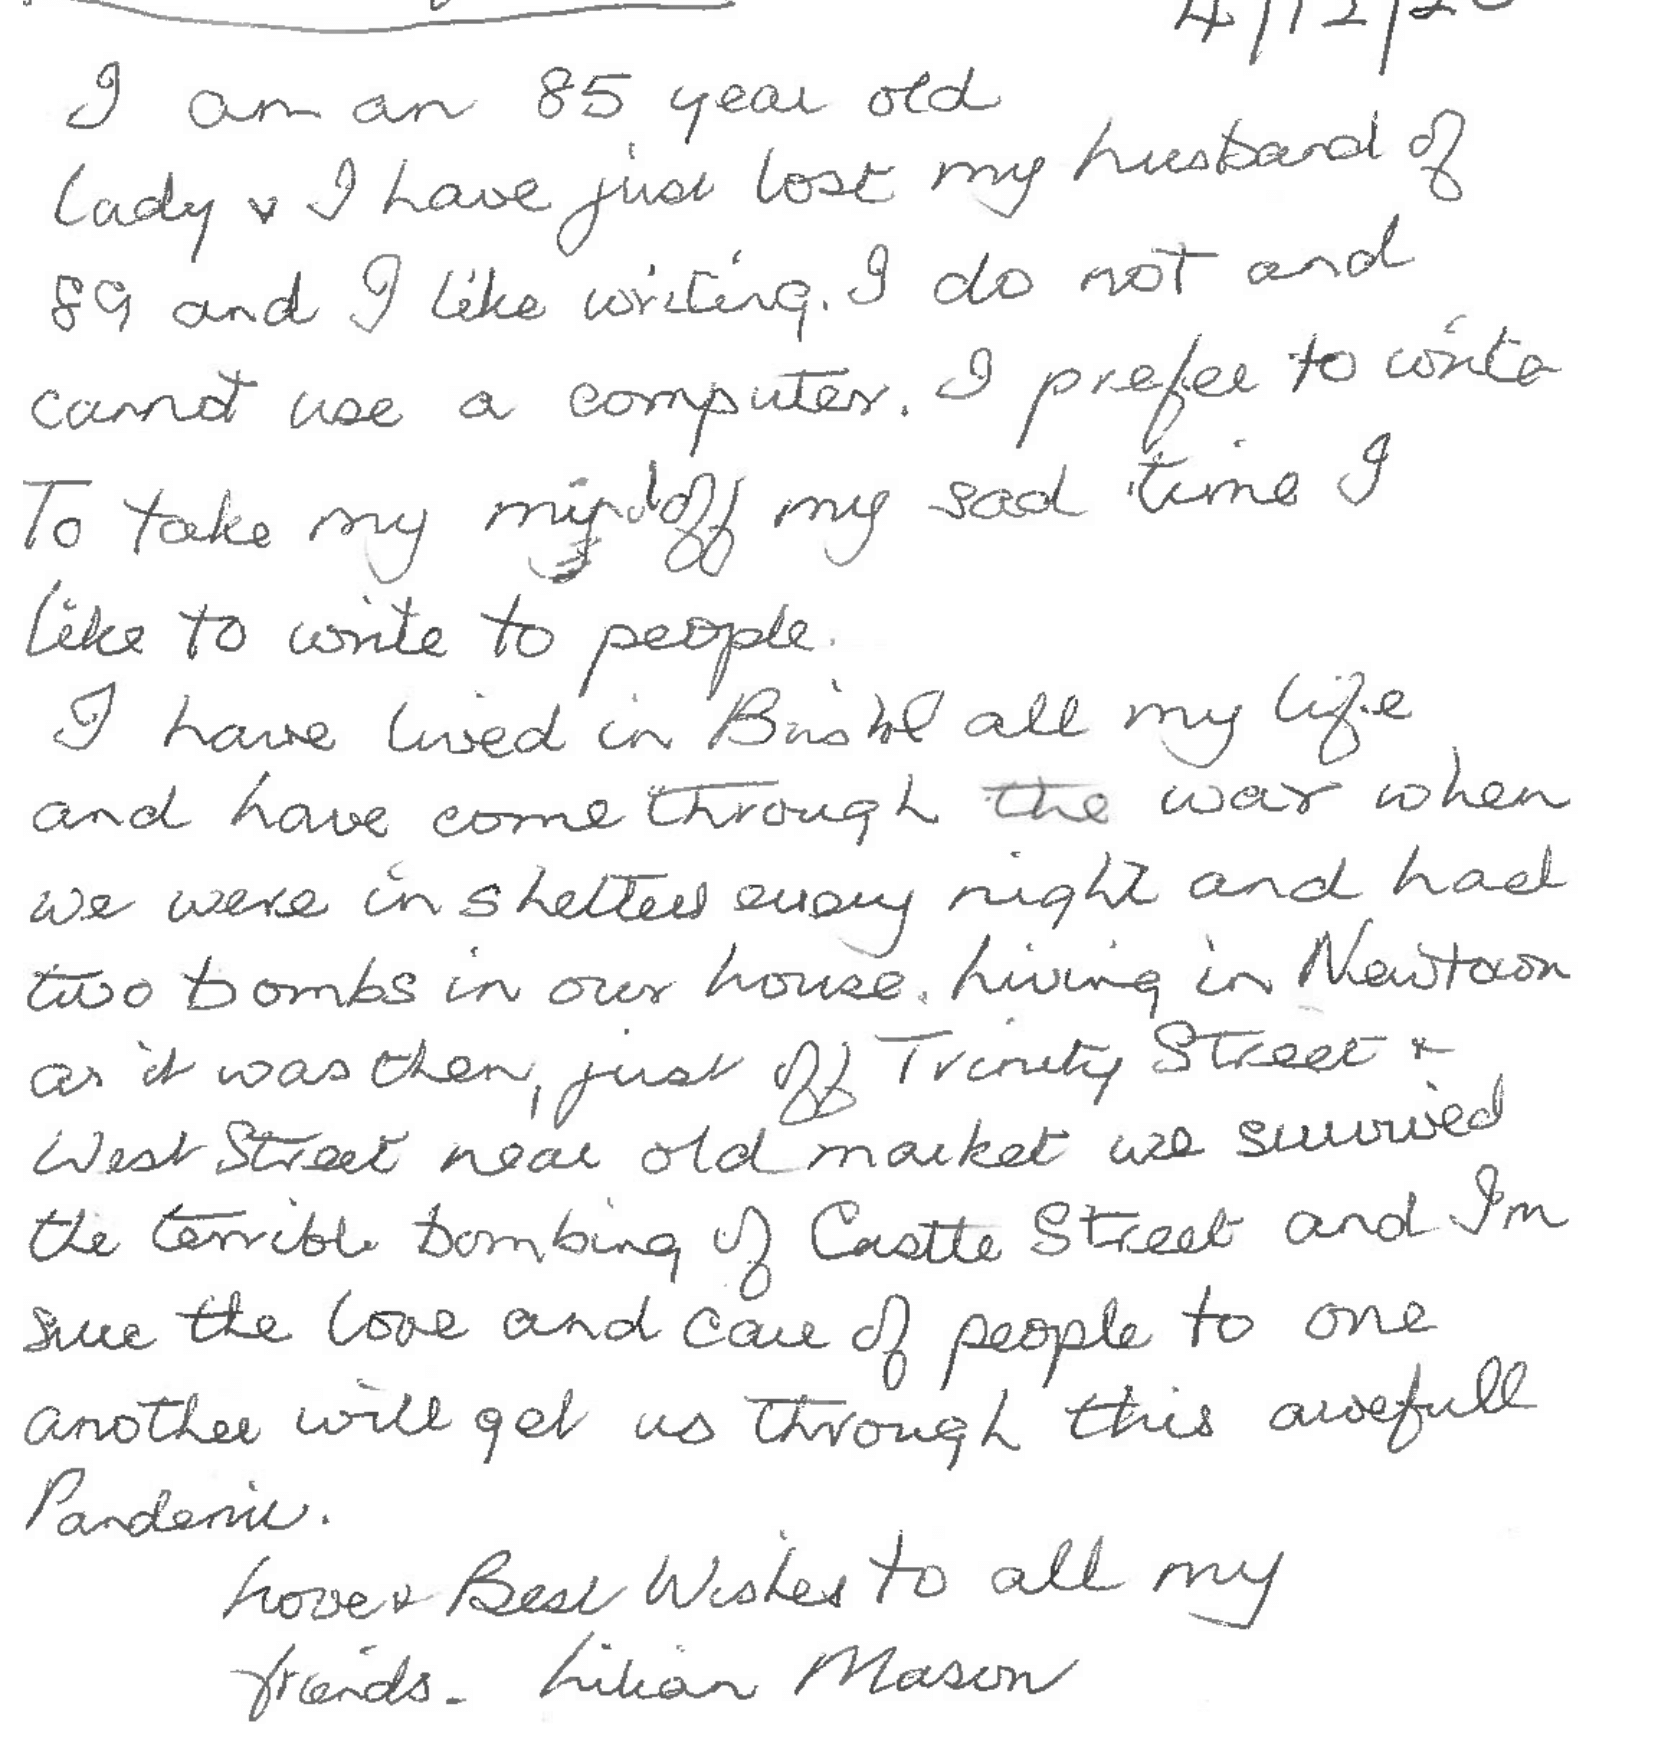 4/12/20
I am an 85 year old
lady & I have just lost my husband of
89 and I like writing. I do not and
cannot use a computer. I prefer to write
To take my mind off my sad time I
like to write to people.
I have lived in Bristol all my life
and have come through the war when
we were in shelters every night and had
two bombs in our house. Living in Newtown
as it was then, just off Trinity Street &
West Street near old market we survived
the terrible bombing of Castle Street and I'm
sure the love and care of people to one
another will get us through this awefull
Pandemic.
Love & Best Wishes to all my
friends. Lilian Mason